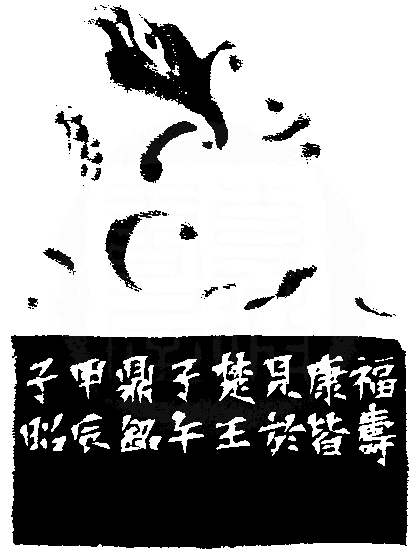 福壽
康皆
見於
楚王
子午
鼎銘
甲辰
子昭